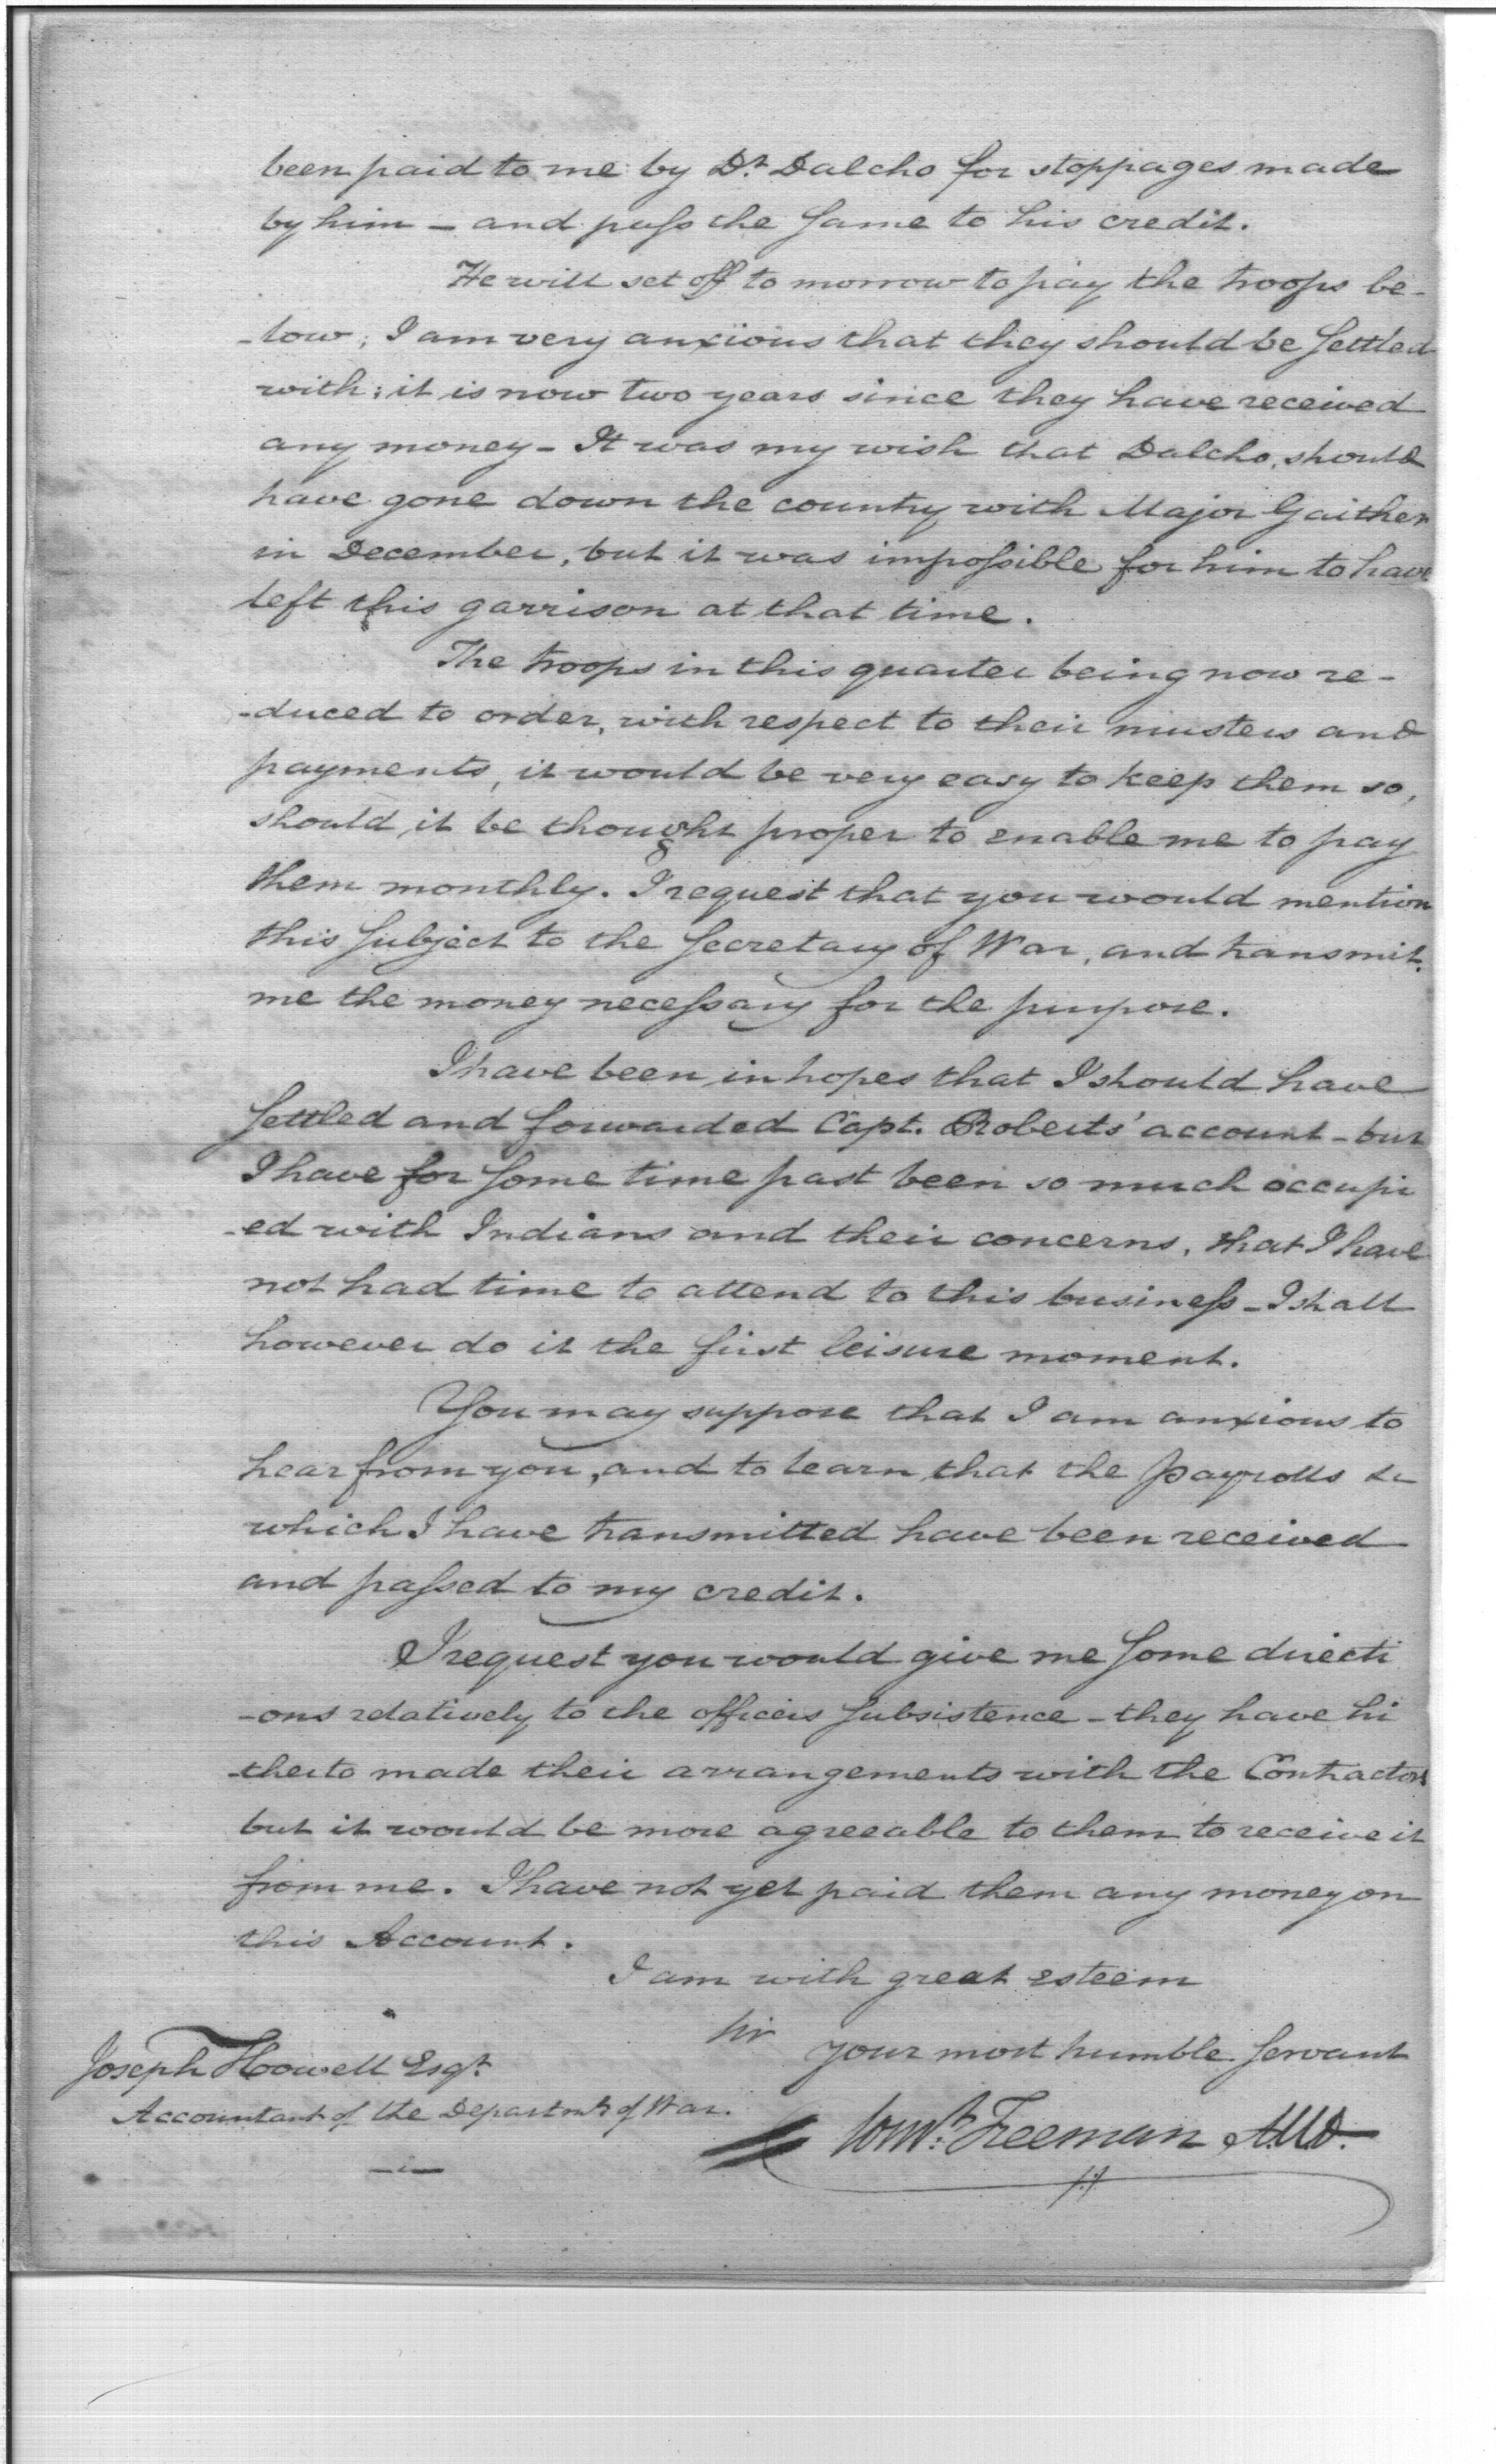 been paid to me by Dr. Dalcho for stoppages made
by him – and pass the same to his credit.
He will set off to morrow to pay the troops be-
-low; I am very anxious that they should be settled
with; it is now two years since they have received
any money – It was my wish that Dalcho, should
have gone down the country with Major Gaither
in December, but it was impossible for him to have
left this garrison at that time.
The troops in this quarter being now re-
-duced to order, with respect to their musters and
payments, it would be very easy to keep them so,
should it be thought proper to enable me to pay
them monthly. I request that you would mention
this subject to the Secretary of War, and transmit
me the money necessary for the purpose.
I have been in hopes that I should have
settled and forwarded Capt. Roberts' account – but
I have for some time past been so much occupi
-ed with Indians and their concerns, that I have
not had time to attend to this business – I shall
however do it the first leisure moment.
You may suppose that I am anxious to
hear from you, and to learn that the payrolls &c
which I have transmitted have been received
and passed to my credit.
I request you would give me some directi
-ons relatively to the officers subsistence – they have hi
-therto made their arrangements with the Contractors
but it would be more agreeable to them to receive it
from me. I have not yet paid them any money on
this Account.
I am with great esteem
Sir
your most humble servant
Joseph Howell Esqr.
Accountant of the Departmt. of War.
Const. Freeman A.W.D.